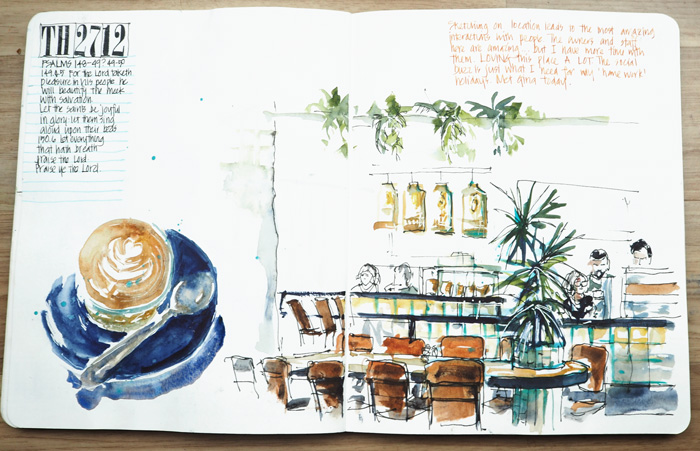 TH 2712
PSALMS 148-49? 49-50
149.4-5 For the Lord taketh
pleasure in his people: he
will beautify the meek
with salvation.
Let the saints be joyful
in glory: let them sing
aloud upon their beds
150.6 let everything
that hath breath
praise the Lord.
Praise ye the Lord.
Sketching on location leads to the most amazing
interactions with people. The owners and staff
here are amazing... but I have more time with
them LOVING this place A LOT. The social
buzz is just what I need for my 'home work'
holiday. Met today.